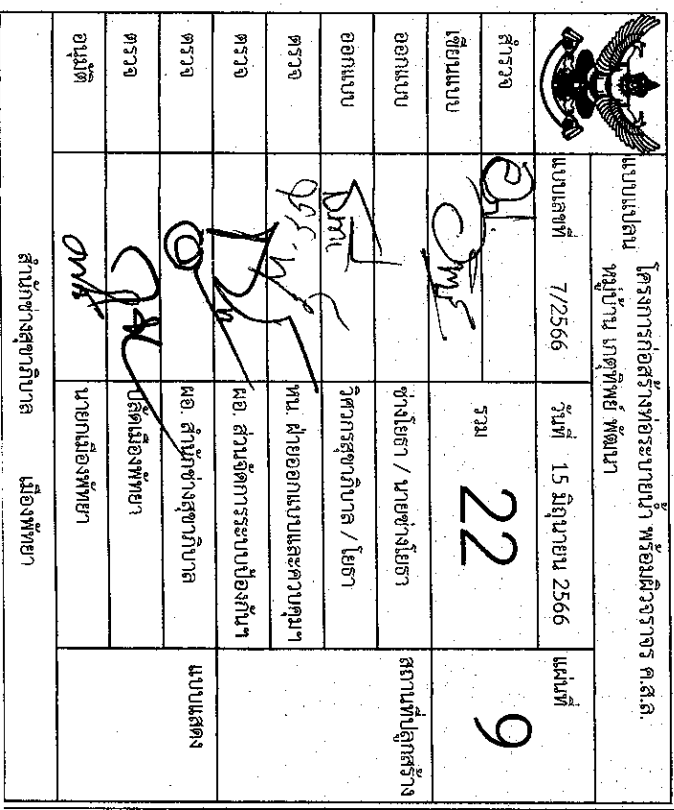 แบบแปลน โครงการก่อสร้างท่อระบายน้ำ พร้อมผิวจราจร ค.ส.ล.
หมู่บ้าน เกตุทิพย์ พัฒนา
แบบเลขที่ 7/2566 วันที่ 15 มิถุนายน 2566 แผ่นที่
สำรวจ
เขียนแบบ รวม 22 9
ออกแบบ ช่างโยธา / นายช่างโยธา สถานที่ปลูกสร้าง
ออกแบบ วิศวกรสุขาภิบาล / โยธา
ตรวจ หน. ฝ่ายออกแบบและควบคุมฯ
ตรวจ ผอ. ส่วนจัดการระบบป้องกันฯ
ตรวจ ผอ. สำนักช่างสุขาภิบาล แบบแสดง
ตรวจ ปลัดเมืองพัทยา
อนุมัติ นายกเมืองพัทยา
สำนักช่างสุขาภิบาล เมืองพัทยา